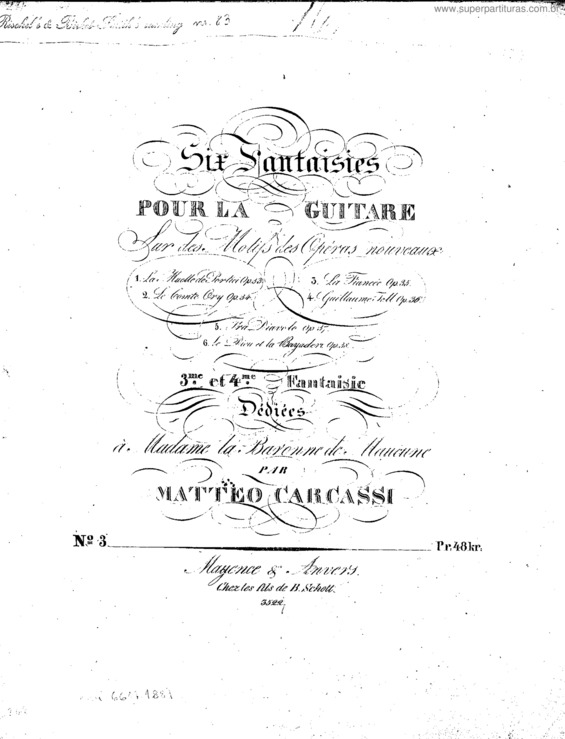 www.superpartituras.com.br
Rischel's & Birket-Smith's samling no. 83
Six Fantaisies
POUR LA GUITARE
Sur des Motifs des Opéras nouveaux
1. La Muette de Portici Op. 53.
2. Le Comte Ory Op. 54.
3. La Fiancée Op. 55.
4. Guillaume Tell Op. 56.
5. Fra Diavolo Op. 57.
6. Le Dieu et la Bayadere Op. 58.
3.me et 4.me Fantaisie
Dédiées
à Madame la Baronne de
PAR
MATTEO CARCASSI
No. 3
Pr. 48 kr.
Mayence & Anvers.
Chez les fils de B. Schott.
3522